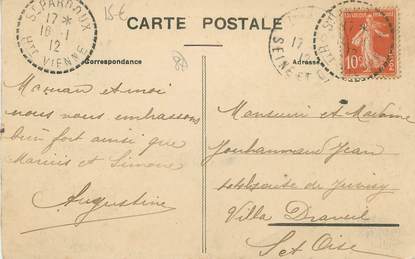 CARTE POSTALE
ST PARDOUX
17 *
16 - 1
12
HTE VIENNE
15€
17
12
SEINE ET
10c
Correspondance
Adresse
Maman et moi
nous nous embrassons
bien fort ainsi que
Marius et Simone
Augustine
Monsieur et Madame
Jean
de Juvisy
Villa Draveil
S et Oise